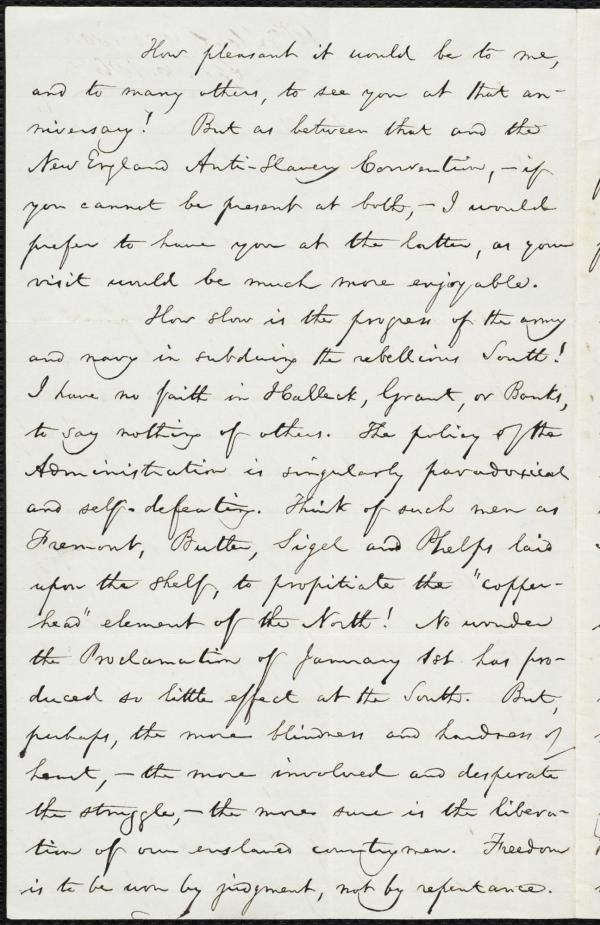 How pleasant it would be to me,
and to many others, to see you at that an-
niversary! But as between that and the
New England Anti-Slavery Convention, - if
you cannot be present at both, - I would
prefer to have you at the latter, as your
visit would be much more enjoyable.
How slow is the progress of the army
and navy in subduing the rebellious South!
I have no faith in Halleck, Grant, or Banks,
to say nothing of others. The policy of the
Administration is singularly paradoxical
and self-defeating. Think of such men as
Fremont, Butler, Sigel and Phelps laid
upon the shelf, to propitiate the "copper-
head" element of the North! No wonder
the Proclamation of January 1st has pro-
duced so little effect at the South. But,
perhaps, the more blindness and hardness of
heart, - the more involved and desperate
the struggle, - the more sure is the libera-
tion of our enslaved countrymen. Freedom
is to be won by judgment, not by repentance.